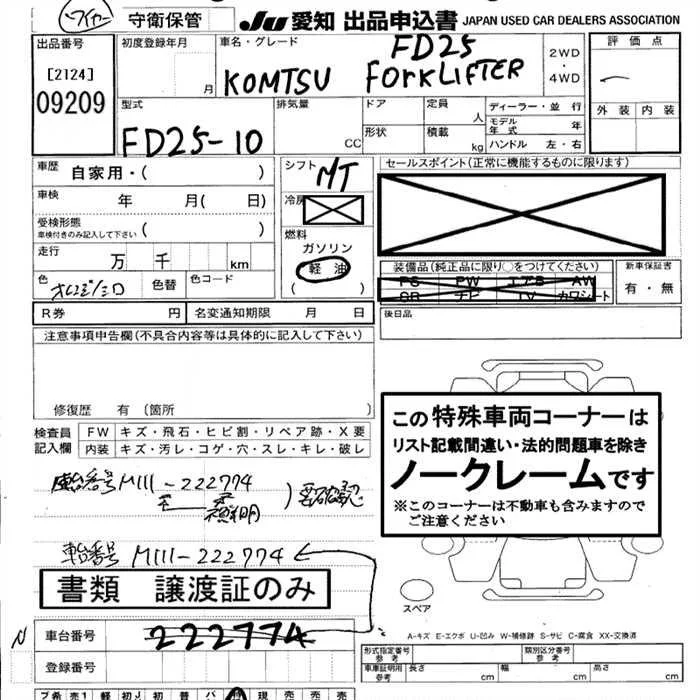 守衛保管
JU 愛知 出品申込書 JAPAN USED CAR DEALERS ASSOCIATION
出品番号
[2124]
09209
初度登録年月
月
車名・グレード
FD25
KOMTSU FORKLIFTER
2WD
・
4WD
評価点
外装 内装
型式
FD25-10
排気量
CC
ドア
形状
定員
人
積載
kg
ディーラー・並行
モデル年式 年
ハンドル 左・右
車歴 自家用・( )
車検 年 月( 日)
受検形態
車検付きのみ記入して下さい ( )
走行 万 千 km
色
色替
色コード
シフト
MT
冷房
燃料
ガソリン
軽油
( )
セールスポイント(正常に機能するものに限ります)
装備品(純正品に限り○をつけてください)
PS PW エアB AW
SR ナビ TV カワシート
新車保証書
有・無
R券 円 名変通知期限 月 日
後日品
注意事項申告欄(不具合内容等は具体的に記入して下さい)
修復歴 有 (箇所 )
検査員記入欄
FW キズ・飛石・ヒビ割・リペア跡・X要
内装 キズ・汚レ・コゲ・穴・スレ・キレ・破レ
この特殊車両コーナーは
リスト記載間違い・法的問題車を除き
ノークレームです
※このコーナーは不動車も含みますので
ご注意ください
M111-222774
車台番号 M111-222774
書類 譲渡証のみ
スペア
N
車台番号 222774
登録番号
A-キズ E-エクボ U-凹み W-補修跡 S-サビ C-腐食 XX-交換済
形式指定番号
参考
類別区分番号
参考
車庫証明用
参考
長さ cm 幅 cm 高さ cm